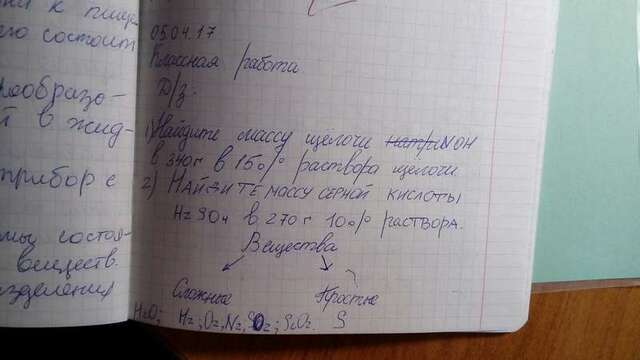 ни к пище
его состоит
образо-
в жид-
прибор с
состоя-
веществ.
05.04.17
Классная работа
Д/з.
1) Найдите массу щёлочи NOH
в 340г в 15% раствора щелочи
2) НАЙДИТЕ МАССУ СЕРНОЙ КИСЛОТЫ
H2SO4 в 270г 10% раствора.
Вещества
Сложные Простые
H2O; H2; O2, N2, SO2; S